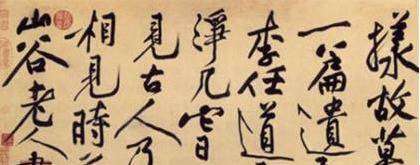 樣故
一篇遺
李任道
淨几它日
見古人乃
相見時
山谷老人書